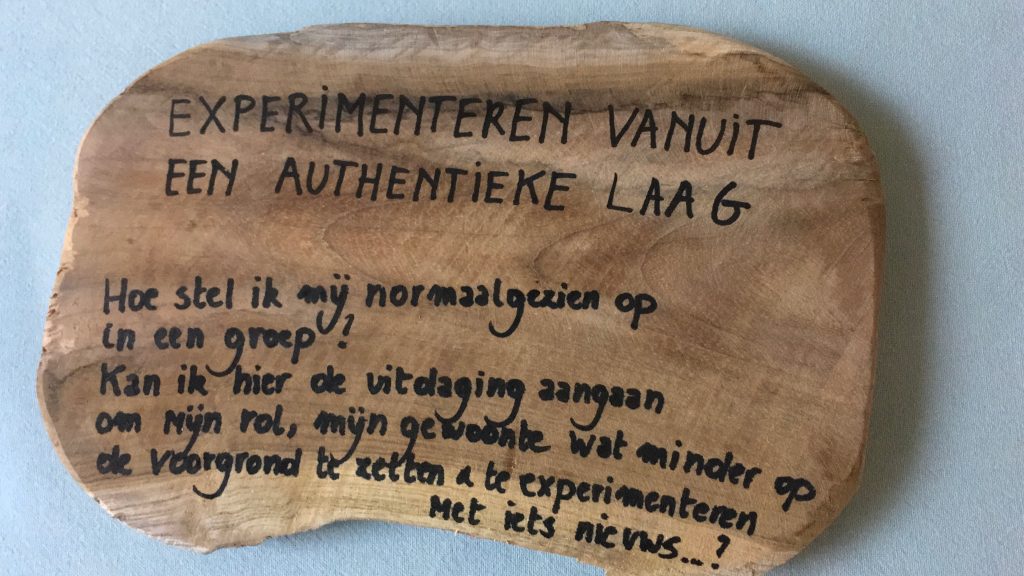 EXPERIMENTEREN VANUIT
EEN AUTHENTIEKE LAAG
Hoe stel ik mij normaalgezien op
in een groep?
Kan ik hier de uitdaging aangaan
om mijn rol, mijn gewoonte wat minder op
de voorgrond te zetten & te experimenteren
met iets nieuws...?